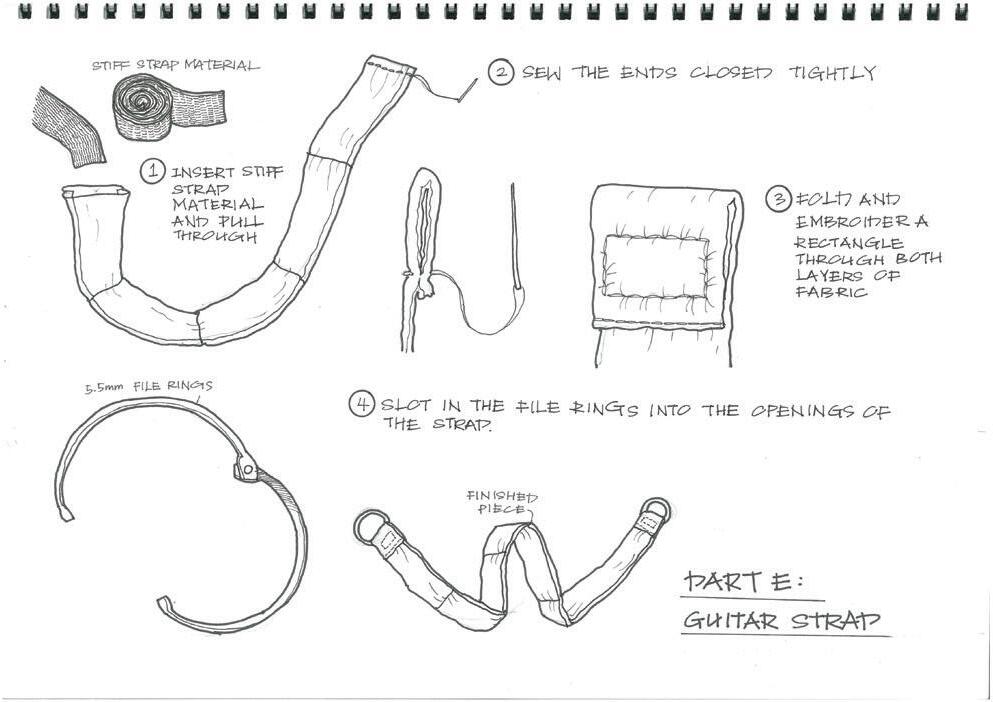 STIFF STRAP MATERIAL
1 INSERT STIFF
STRAP
MATERIAL
AND PULL
THROUGH
2 SEW THE ENDS CLOSED TIGHTLY
3 FOLD AND
EMBROIDER A
RECTANGLE
THROUGH BOTH
LAYERS OF
FABRIC
5.5mm FILE RINGS
4 SLOT IN THE FILE RINGS INTO THE OPENINGS OF
THE STRAP.
FINISHED
PIECE
PART E:
GUITAR STRAP